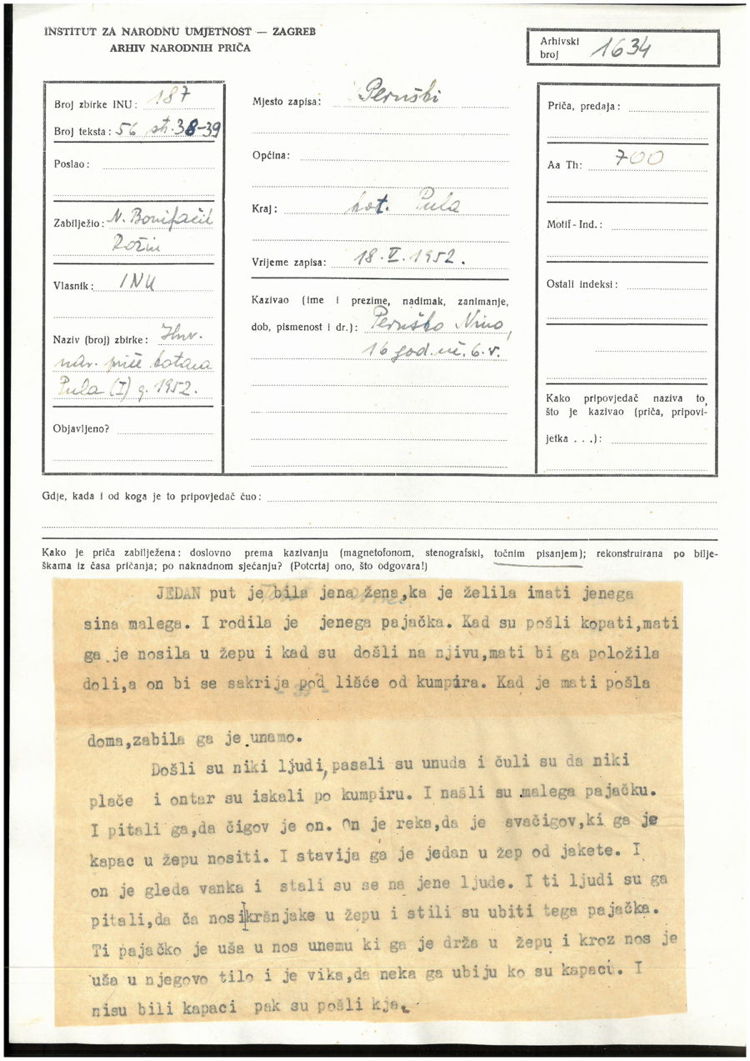 INSTITUT ZA NARODNU UMJETNOST — ZAGREB
ARHIV NARODNIH PRIČA
Arhivski broj 1634
Broj zbirke INU: 187
Broj teksta: 56 str. 38-39
Poslao:
Zabilježio: N. Bonifačić
Rožin
Vlasnik: INU
Naziv (broj) zbirke: Istar.
nar. priče kotara
Pula (I) g. 1952.
Objavljeno?
Mjesto zapisa: Peruški
Općina:
Kraj: kot. Pula
Vrijeme zapisa: 18. V. 1952.
Kazivao (ime i prezime, nadimak, zanimanje,
dob, pismenost i dr.): Peruško Nino,
16 god. 6. r.
Priča, predaja:
Aa Th: 700
Motif - Ind.:
Ostali indeksi:
Kako pripovjedač naziva to,
što je kazivao (priča, pripovi-
jetka . . .):
Gdje, kada i od koga je to pripovjedač čuo:
Kako je priča zabilježena: doslovno prema kazivanju (magnetofonom, stenografski, točnim pisanjem); rekonstruirana po bilje-
škama iz časa pričanja; po naknadnom sjećanju? (Potcrtaj ono, što odgovara!)
JEDAN put je bila jena žena,ka je želila imati jenega
sina malega. I rodila je jenega pajačka. Kad su pošli kopati,mati
ga je nosila u žepu i kad su došli na njivu,mati bi ga položila
doli,a on bi se sakrija pod lišće od kumpira. Kad je mati pošla
doma,zabila ga je unamo.
Došli su niki ljudi,pasali su unuda i čuli su da niki
plače i ontar su iskali po kumpiru. I našli su malega pajačku.
I pitali ga,da čigov je on. On je reka,da je svačigov,ki ga je
kapac u žepu nositi. I stavija ga je jedan u žep od jakete. I
on je gleda vanka i stali su se na jene ljude. I ti ljudi su ga
pitali,da ča nosi kršnjake u žepu i stili su ubiti tega pajačka.
Ti pajačko je uša u nos unemu ki ga je drža u žepu i kroz nos je
uša u njegovo tilo i je vika,da neka ga ubiju ko su kapaci. I
nisu bili kapaci pak su pošli kja.